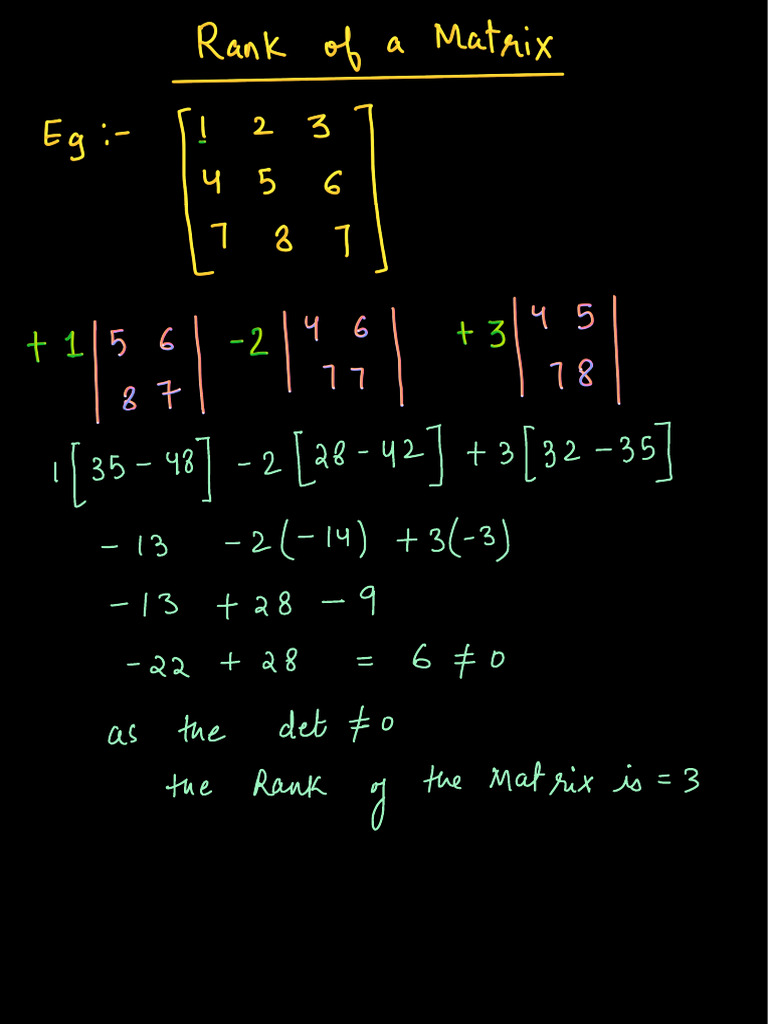 Rank of a Matrix
Eg :- [1 2 3
4 5 6
7 8 7]
+1 |5 6 -2 |4 6 +3 |4 5
8 7| 7 7| 7 8|
1[35-48] -2[28-42] +3[32-35]
-13 -2(-14) +3(-3)
-13 +28 -9
-22 + 28 = 6 ≠ 0
as the det ≠ 0
the Rank of the Matrix is = 3